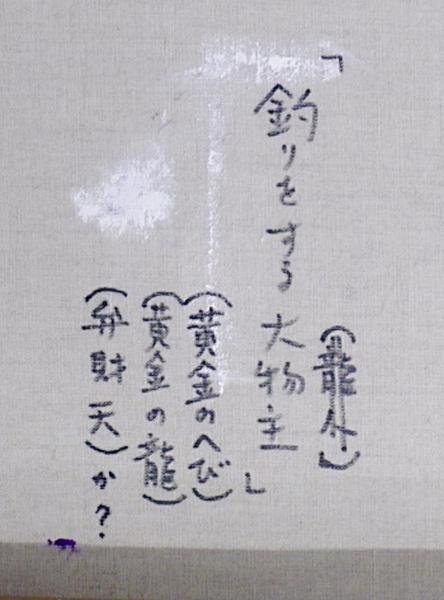 「釣りをする大物主」
(黄金のへび)
(黄金の龍)
(弁財天)か?